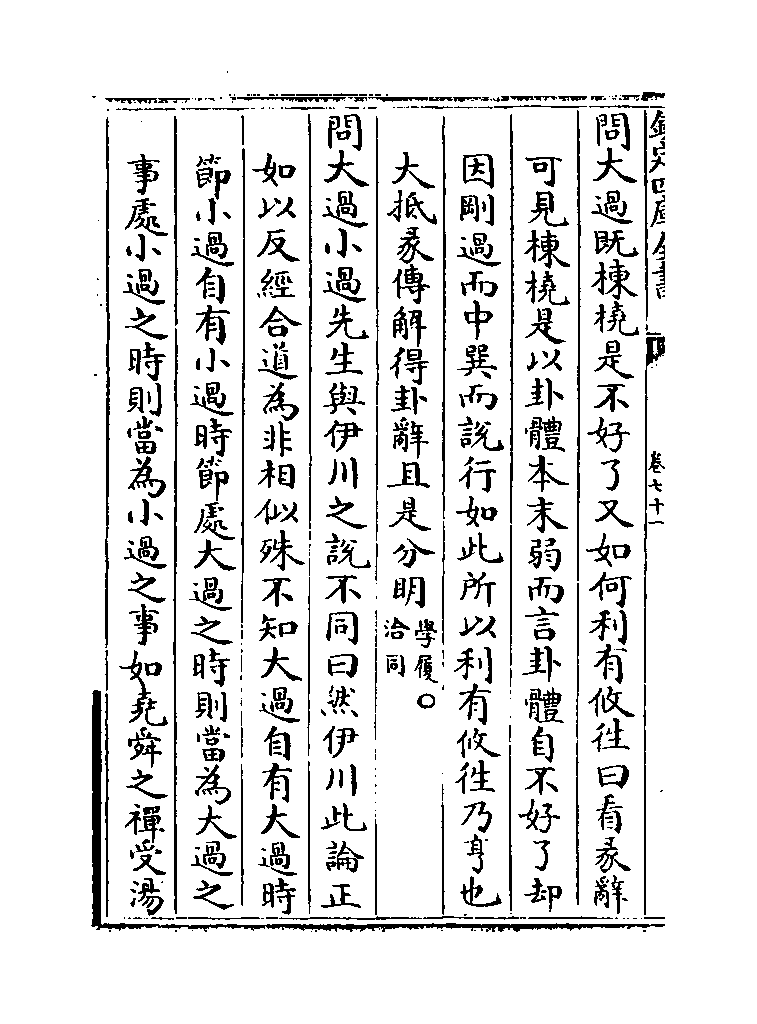 欽定四庫全書
卷七十一
問大過既棟橈是不好了又如何利有攸徃曰看彖辭
可見棟橈是以卦體本末弱而言卦體自不好了却
因剛過而中巽而說行如此所以利有攸徃乃亨也
大抵彖傳解得卦辭且是分明學履〇洽同
問大過小過先生與伊川之說不同曰然伊川此論正
如以反經合道為非相似殊不知大過自有大過時
節小過自有小過時節處大過之時則當為大過之
事處小過之時則當為小過之事如堯舜之禪受湯